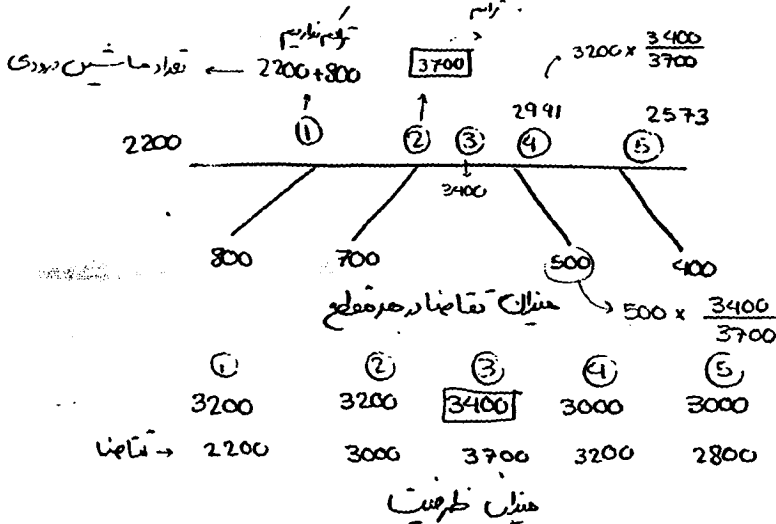 تراکم
تراکم نداریم
تعداد ماشین ورودی ← 2200+800
3700
3200 × 3400/3700
2991
2573
2200
① ② ③ ④ ⑤
3400
800 700 500 400
میزان تقاضا در هر مقطع
500 × 3400/3700
① ② ③ ④ ⑤
3200 3200 3400 3000 3000
تقاضا → 2200 3000 3700 3200 2800
میزان ظرفیت